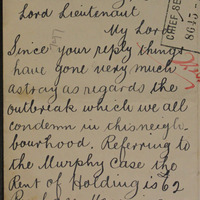 Lord Lieutenant
My Lord
Since your reply things
have gone very much
astray as regards the
outbreak which we all
condemn in this neigh
bourhood. Referring to
the Murphy Case the
Rent of Holding is £62
CHIEF SE
8645